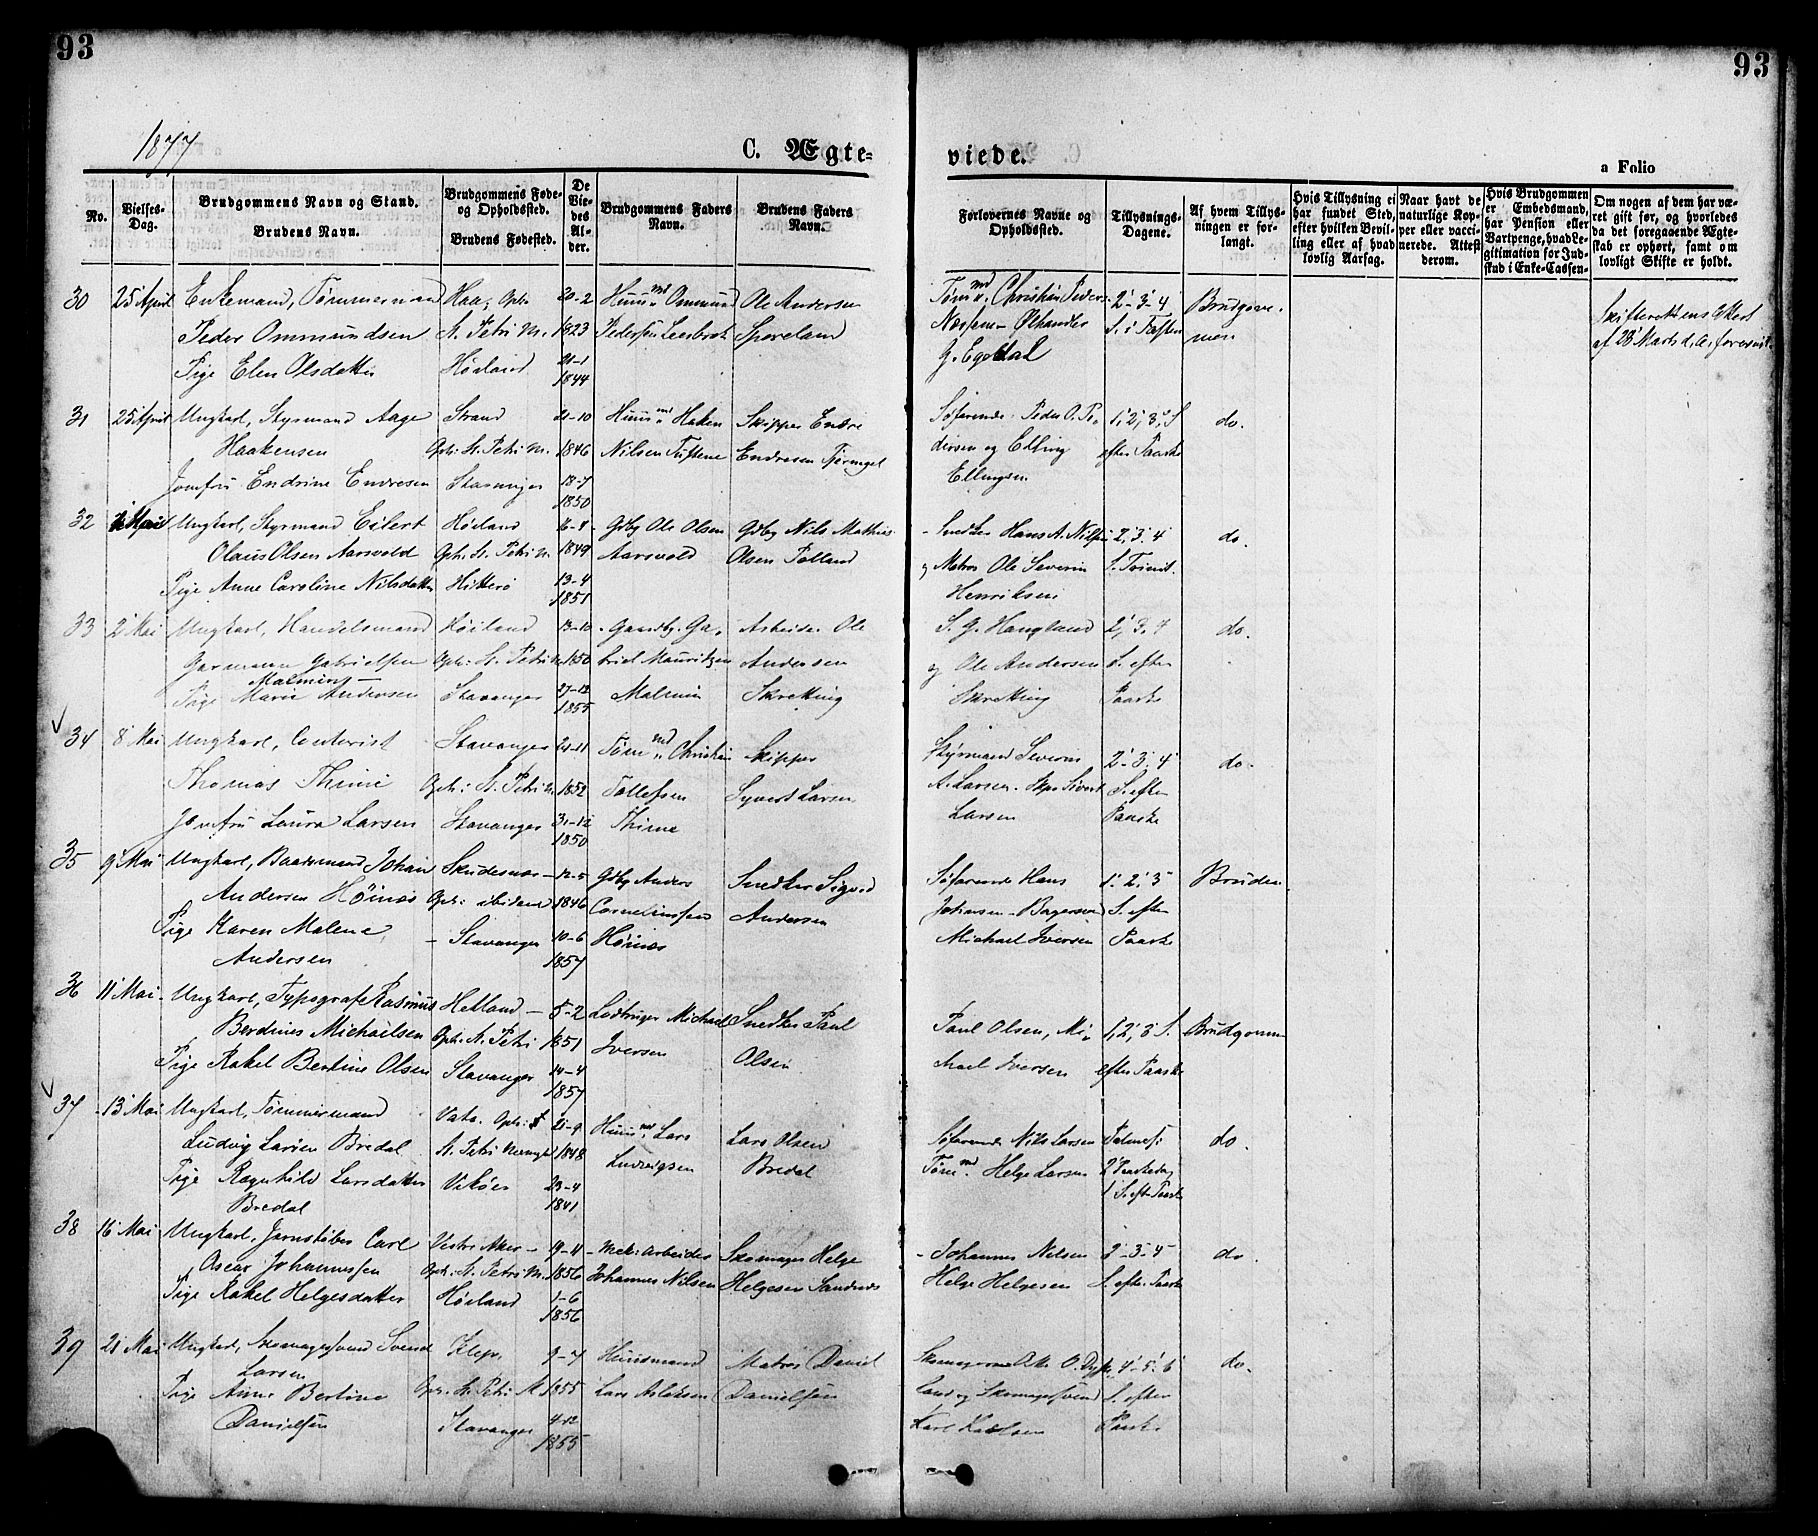 93
93
1877
C. Ægte-
viede.
a Folio
No.
Vielses-Dag.
Brudgommens Navn og Stand.
Brudens Navn.
Brudgommens Føde- og Opholdssted.
Brudens Fødested.
De Viedes Alder.
Brudgommens Faders Navn.
Brudens Faders Navn.
Forlovernes Navne og Opholdssted.
Tillysnings-Dagene.
Af hvem Tillysningen er forlangt.
Hvis Tillysning ei har fundet Sted, efter hvilken Bevilling eller af hvad lovlig Aarsag.
Naar havt de naturlige Kopper eller vaccinerede. Attesterom.
Hvis Brudgommen er Embedsmand, har Pension eller Vartpenge, hvad Legitimation for Indskud i Enke-Cassen
Om nogen af dem har været gift før, og hvorledes da det foregaaende Ægteskab er ophørt, samt om lovligt Skifte er holdt.
30 25 April Enkemand, Tømmermand Haa, Oph: 20-2 Huusmd Ommund Ole Andersen Tømmd Christian Peders 2'-3'-4' Brudgom-
Peder Ommundsen St. Petri M. 1823 Pedersen Sporeland S. i Fasten men Skifterettens Attest
Pige Elen Olsdatter Høiland 21-1 G. Egedal af 28 Marts d. A. forevist
1844
31 25 April Ungkarl, Styrmand Aage Strand 21-10 Huusmd Haken Skipper Endre Søfarende Peder O. Pe- 1', 2', 3' S do.
Haakensen Oph: St. Petri M. 1846 Nilsen Tuftene Endresen dersen og Elling efter Paaske
Jomfru Endrine Endresen Stavanger 18-7 Ellingsen
1850
32 Mai Ungkarl, Styrmand Eilert Høiland 16-4 Gdbg Ole Olsen Gdbg Nils Mathias Snedker Hans A. Nilsen 2', 3', 4' do.
Olaus Olsen Aarsvold Oph: St. Petri M. 1849 Aarsvold Olsen og Matros Ole Severin S. Trinit.
Pige Anne Caroline Nilsdatter Hitterø 13-4 Henriksen
1851
33 2' Mai Ungkarl, Handelsmand Høiland 13-10 Gaardbg. Ga- Arbeider Ole S. G. Haugland 2', 3', 4 do.
Garmann Gabrielsen Oph: St. Petri M 1850 briel Mauritzen Andersen og Ole Andersen S. efter
Malming
Pige Marie Andersen Stavanger 27-12 Malmin Skretting Skretting Paaske
1855
34 8' Mai Ungkarl, Contorist Stavanger 21-11 Tømmd Christian Skipper Styrmand Severin 2'-3', 4' do.
Thomas Thime Oph: St. Petri M. 1852 Tollefsen Syvert Larsen A. Larsen. Skpr Sivert S. efter
Jomfru Laura Larsen Stavanger 31-12 Thime Larsen Paaske
1850
35 9' Mai Ungkarl, Baadsmand Johan Skudesnæs 12-5 Gdbg Anders Snedker Sigvard Søfarende Hans 1', 2', 3' Bruden
Andersen Høines Oph: ibidem 1846 Corneliussen Andersen Johnsen Bagersvend S. efter
Pige Karen Malene Stavanger 10-6 Høines Michael Iversen Paaske
Andersen 1857
36 11' Mai Ungkarl, Typograf Rasmus Hetland 5-2 Lodbruger Michael Snedker Paul Paul Olsen, Mi- 1', 2', 3' S. Brudgommen
Berdines Michaelsen Oph: St. Petri 1851 Iversen Olsen chael Iversen efter Paaske
Pige Rakel Bertine Olsen Stavanger 14-4
1857
37 13' Mai Ungkarl, Tømmermand Vats. Oph: 21-9 Huusmd Lars Lars Olsen Søfarende Nils Larsen Palmes: do
Ludvig Larsen Bredal St. Petri Menigh 1848 Ludvigsen Bredal Tømmd Helge Larsen 2' Paaskedag
Pige Ragnhild Larsdatter Vikøer 23-4 1' S. eft. Paaske
Bredal 1841
38 16' Mai Ungkarl, Jernstøber Carl Vestre Aker 19-4 mek: Arbeider Skomager Helge Johannes Nilsen 2'-3'-4' do
Oscar Johannessen Oph: St. Petri M. 1856 Johannes Nilsen Helgesen Sandnæs Helge Helgesen S. efter Paaske
Pige Rakel Helgesdatter Høiland 1-6
1856
39 21' Mai Ungkarl, Skomagersvend Svend Klep, 9-7 Huusmand Matros Daniel Skomagerne 4'-5'-6' do.
Larsen
Pige Anne Bertine Oph: St. Petri M. 1855 Lars Aslaksen Danielsen land og Skomagersvend S. efter
Danielsen Stavanger 4-12 Karl Karlsen Paaske
1855